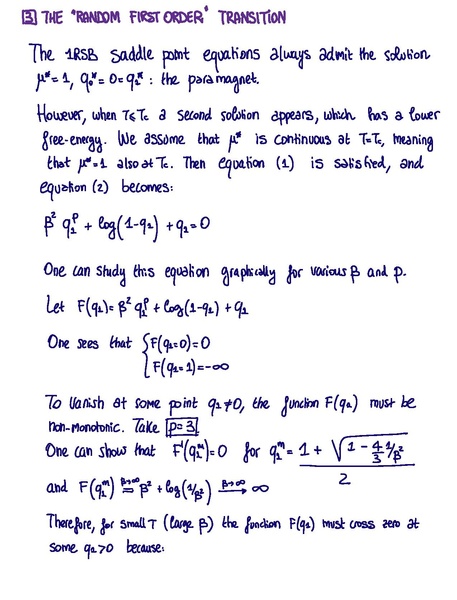 3 THE "RANDOM FIRST ORDER" TRANSITION
The 1RSB saddle point equations always admit the solution
μ*=1, q₀*=0=q₁* : the paramagnet.
However, when T≤Tc a second solution appears, which has a lower
free-energy. We assume that μ* is continuous at T=Tc, meaning
that μ*=1 also at Tc. Then equation (1) is satisfied, and
equation (2) becomes:
β² q₁ᵖ + log(1-q₁) + q₁=0
One can study this equation graphically for various β and p.
Let F(q₁)=β² q₁ᵖ + log(1-q₁) + q₁
One sees that { F(q₁=0)=0
F(q₁=1)=-∞
To vanish at some point q₁≠0, the function F(q₁) must be
non-monotonic. Take p=3
One can show that F'(q₁ᵐ)=0 for q₁ᵐ = (1 + √(1 - 4/3 1/β²))/2
and F(q₁ᵐ) =^(β→∞) β² + log(1/β²) →^(β→∞) ∞
Therefore, for small T (large β) the function F(q₁) must cross zero at
some q₁>0 because: